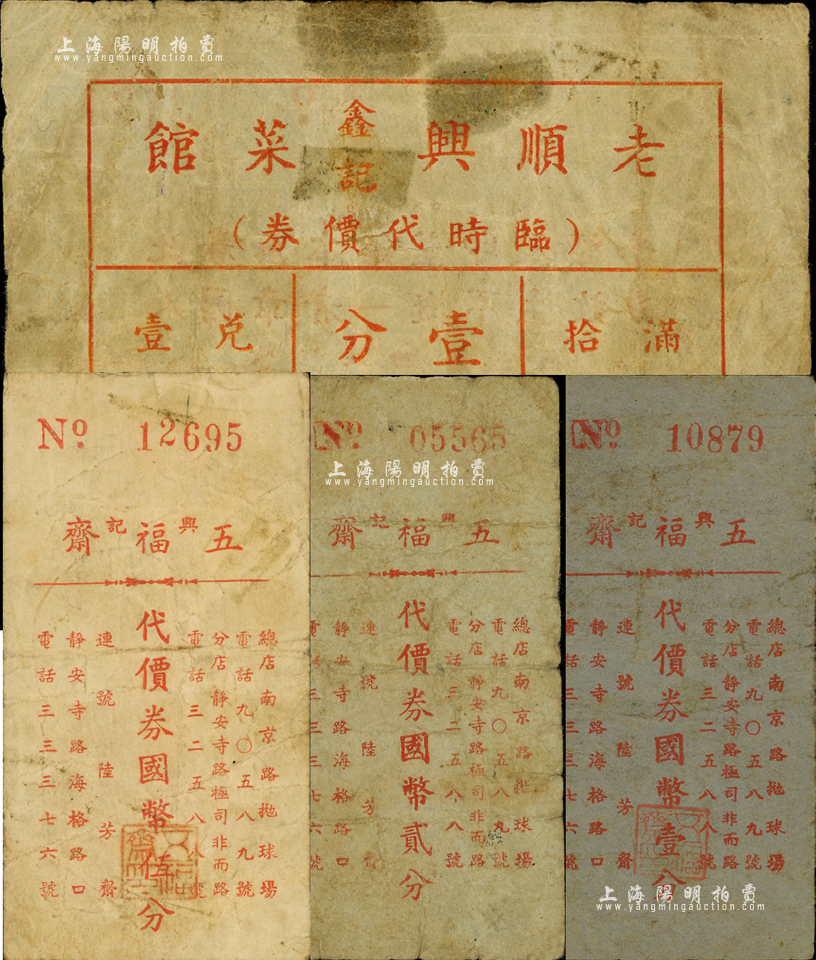 上海陽明拍賣
www.yangmingauction.com
老順興鑫記菜館
(臨時代價券)
滿拾
壹分
兑壹
No. 12695
五福齋
興記
總店南京路拋球場
電話九〇五八九號
分店靜安寺路極司非而路
電話三二五八八號
代價券國幣伍分
連號陸芳齋
靜安寺路海格路口
電話三三三七六號
No. 05565
上海陽明拍賣
www.yangmingauction.com
五福齋
興記
總店南京路拋球場
電話九〇五八九號
分店靜安寺路極司非而路
電話三二五八八號
代價券國幣貳分
連號陸芳齋
靜安寺路海格路口
電話三三三七六號
No. 10879
五福齋
興記
總店南京路拋球場
電話九〇五八九號
分店靜安寺路極司非而路
電話三二五八八號
代價券國幣壹分
連號陸芳齋
靜安寺路海格路口
電話三三三七六號
上海陽明拍賣
www.yangmingauction.com